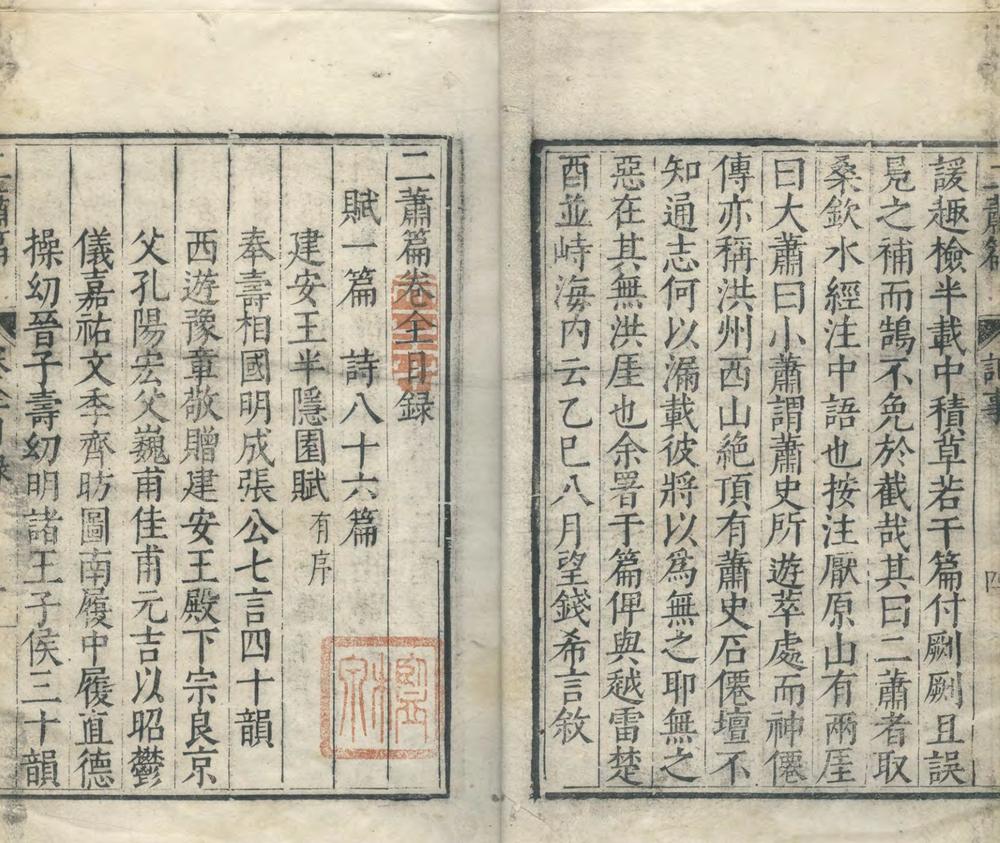 諼趣檢半載中積草若干篇付劂劂且誤
鳧之補而鵠不免於截哉其曰二蕭者取
桑欽水經注中語也按注厭原山有兩厓
曰大蕭曰小蕭謂蕭史所遊萃處而神僊
傳亦稱洪州西山絶頂有蕭史石僊壇不
知通志何以漏載彼將以爲無之耶無之
惡在其無洪厓也余署于篇俾與越雷楚
酉並峙海內云乙巳八月望錢希言敘
二蕭篇卷全目録
賦一篇 詩八十六篇
建安王半隱園賦有序
奉壽相國明成張公七言四十韻
西遊豫章敬贈建安王殿下宗良京
父孔陽宏父巍甫佳甫元吉以昭鬱
儀嘉祐文季齊昉圖南履中履直德
操幻晉子壽幼明諸王子侯三十韻